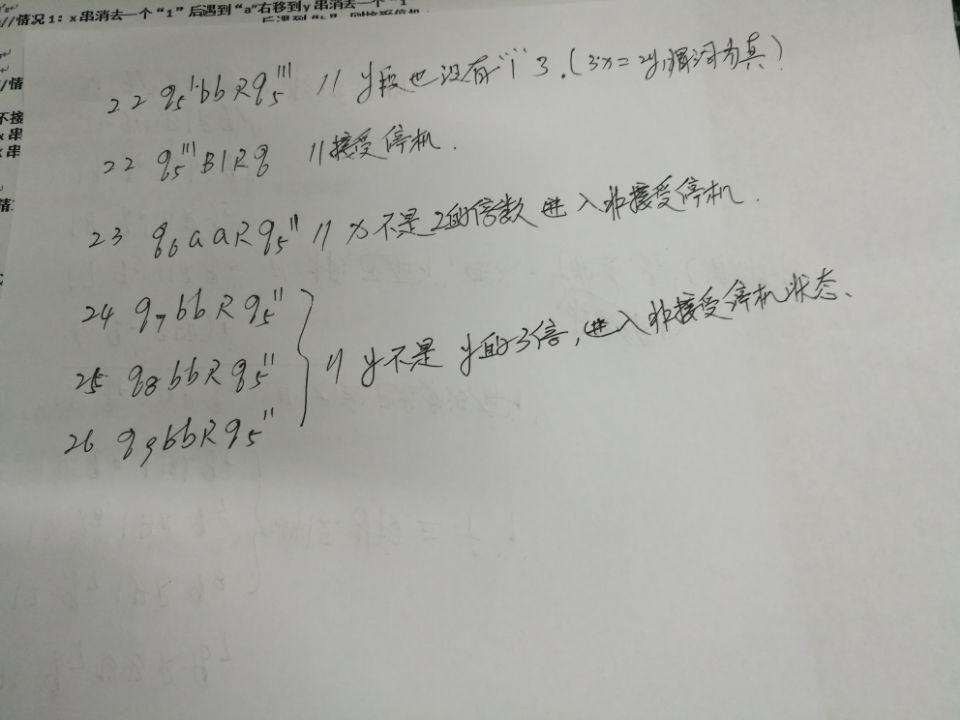 //情况1：x串消去一个“1”后遇到“a”右移到y串消去一个“1
//情
不接
x串
x串
22 q₅' bb R q₅''' // y段也没有“1”3.(3x=2y，谓词为真)
22 q₅''' B1R q //接受停机.
23 q₆ a a R q₅'' // x不是2的倍数 进入非接受停机.
24 q₇ bb R q₅''
25 q₈ bb R q₅'' // y不是 y的3倍,进入非接受停机状态、
26 q₉ bb R q₅''